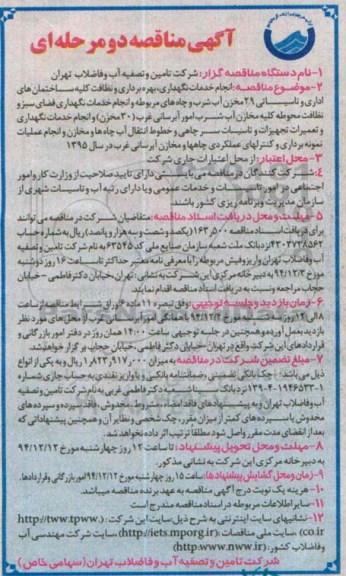 آگهی مناقصه دو مرحله ای
۱-نام دستگاه مناقصه گزار: شرکت تامین و تصفیه آب و فاضلاب تهران
۲-موضوع مناقصه: انجام خدمات نگهداری، بهره برداری و نظافت کلیه ساختمان های
اداری و تاسیساتی ۲۹ مخزن آب شرب و چاه های مربوطه و انجام خدمات نگهداری فضای سبز و
نظافت محوطه کلیه مخازن آب شرب امور آبرسانی غرب (۳۰ مخزن) و انجام خدمات نگهداری
و تعمیرات تجهیزات و تاسیسات سر چاهی و خطوط انتقال آب چاه ها و مخازن و انجام عملیات
نمونه برداری و کنترلهای عملکردی چاهها و مخازن آبرسانی غرب در سال ۱۳۹۵
۳- محل اعتبار: از محل اعتبارات جاری شرکت
۴: شرکت کنندگان در مناقصه می بایستی دارای تایید صلاحیت از وزارت کار و امور
اجتماعی در امور تاسیسات و خدمات عمومی و یا دارای رتبه آب و تاسیسات شهری از
سازمان مدیریت و برنامه ریزی کشور باشند.
۵-مهلت و محل دریافت اسناد مناقصه: متقاضیان شرکت در مناقصه می توانند
برای دریافت اسناد مناقصه ۱۶۳٫۵۰۰ (یکصد و شصت و سه هزار و پانصد) ریال به شماره حساب
۴۲۰۳۷۳۸۵۶۲ نزد بانک ملت شعبه سازمان صنایع ملی کد ۶۳۵۴۵ به نام شرکت تامین و تصفیه
آب و فاضلاب تهران واریز و فیش مربوطه را با معرفی نامه معتبر حداکثر تا ساعت ۱۶ روز دوشنبه
مورخ ۹۴/۱۲/۳ به دبیرخانه مرکزی این شرکت به نشانی: تهران، خیابان دکتر فاطمی - خیابان
حجاب مراجعه و نسبت به دریافت اسناد مناقصه اقدام نمایند.
۶-زمان بازدید و جلسه توجیهی: وفق تبصره ۱۱ ماده ۶ اوراق شرایط مناقصه از ساعت
بازدید بعمل آورده و همچنین در جلسه توجیهی ساعت ۱۴:۰۰ همان روز در دفتر امور بازرگانی و
قراردادهای این شرکت واقع در تهران- خیابان دکتر فاطمی، خیابان حجاب برگزار خواهد شد.
۷-مبلغ تضمین شرکت در مناقصه به میزان ۱٫۸۲۳٫۹۱۷٫۰۰۰ ریال و به یکی از انواع
ذیل می باشد: - چک بانکی تضمینی، ضمانتنامه بانکی و یا واریز نقدی به حساب جاری شماره
آب و فاضلاب تهران و به پیشنهادهای فاقد امضاء، مشروط، مخدوش، فاقد سپرده و سپرده های
مخدوش یا سپرده های کمتر از میزان مقرر، چک شخصی و نظایر آن و همچنین پیشنهاداتی که
بعد از انقضای مدت مقرر واصل شود مطلقا ترتیب اثر داده نخواهد شد.
۸-مهلت و محل تحویل پیشنهاد: تا ساعت ۱۲ روز چهارشنبه مورخ ۹۴/۱۲/۱۲
به دبیرخانه مرکزی این شرکت به نشانی مذکور.
۹-زمان و محل گشایش پیشنهادها: ساعت ۱۵ روز چهارشنبه مورخ ۹۴/۱۲/۱۲ امور بازرگانی و قراردادها.
۱۰-هزینه یک نوبت درج آگهی مناقصه به عهده برنده مناقصه میباشد.
۱۱-سایر اطلاعات مربوطه در اسناد مناقصه مندرج است
۱۲-نشانیهای سایت اینترنتی به شرح ذیل سایت این شرکت: (http://tww.tpww.
co.ir) سایت ملی مناقصات: (http://iets.mporg.ir) سایت شرکت مهندسی آب
وفاضلاب کشور: (http:www.nww.ir)
شرکت تامین و تصفیه آب و فاضلاب تهران (سهامی خاص)